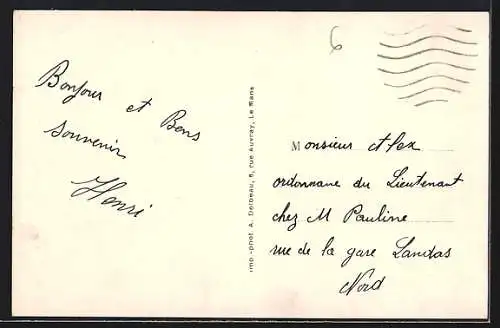 6
Bonjour et Bons
souvenir
Henri
Imp.-phot. A. Dolbeau, 5, rue Auvray, Le Mans
Monsieur Alex
ordonnane du Lieutenant
chez M Pauline
rue de la gare Landas
Nord